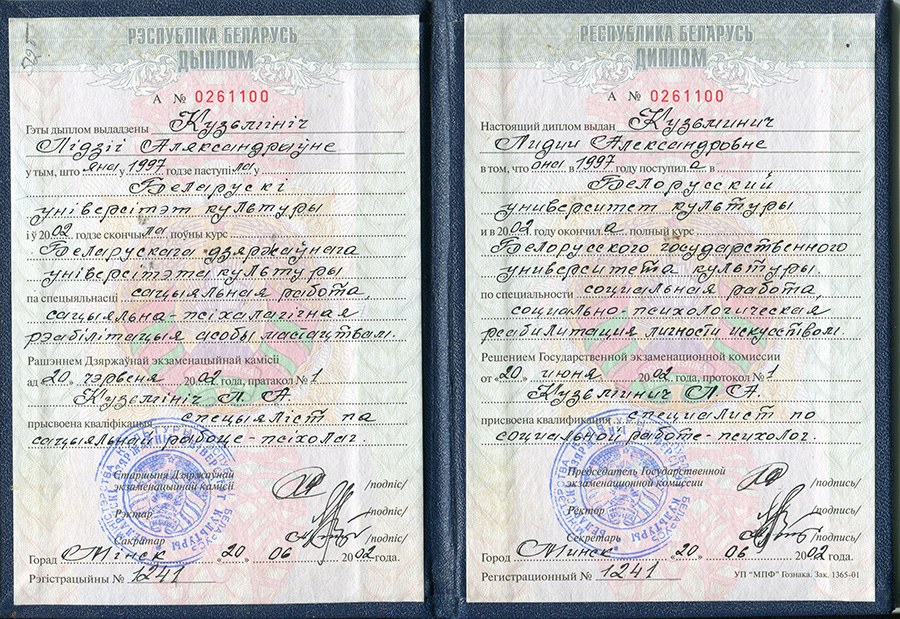 РЭСПУБЛІКА БЕЛАРУСЬ
ДЫПЛОМ
А № 0261100
Гэты дыплом выдадзены Кузьмініч
Лідзіі Аляксандраўне
у тым, што яна у 1997 годзе паступіла у
Беларускі
універсітэт культуры
і ў 2002 годзе скончыла поўны курс
Беларускага дзяржаўнага
універсітэта культуры
па спецыяльнасці сацыяльная работа,
сацыяльна-псіхалагічная
рэабілітацыя асобы мастацтвам.
Рашэннем Дзяржаўнай экзаменацыйнай камісіі
ад "20" чэрвеня 2002 года, пратакол № 1
Кузьмініч Л. А.
прысвоена кваліфікацыя спецыяліст па
сацыяльнай рабоце-псіхолаг.
Старшыня Дзяржаўнай
экзаменацыйнай камісіі /подпіс/
Рэктар /подпіс/
Сакратар /подпіс/
Горад Мінск "20" 06 2002 года.
Рэгістрацыйны № 1241
РЕСПУБЛИКА БЕЛАРУСЬ
ДИПЛОМ
А № 0261100
Настоящий диплом выдан Кузьминич
Лидии Александровне
в том, что она в 1997 году поступила в
Белорусский
университет культуры
и в 2002 году окончила полный курс
Белорусского государственного
университета культуры
по специальности социальная работа,
социально-психологическая
реабилитация личности искусством.
Решением Государственной экзаменационной комиссии
от "20" июня 2002 года, протокол № 1
Кузьминич Л. А.
присвоена квалификация специалист по
социальной работе-психолог.
Председатель Государственной
экзаменационной комиссии /подпись/
Ректор /подпись/
Секретарь /подпись/
Город Минск "20" 06 2002 года.
Регистрационный № 1241
УП "МПФ" Гознака. Зак. 1365-01